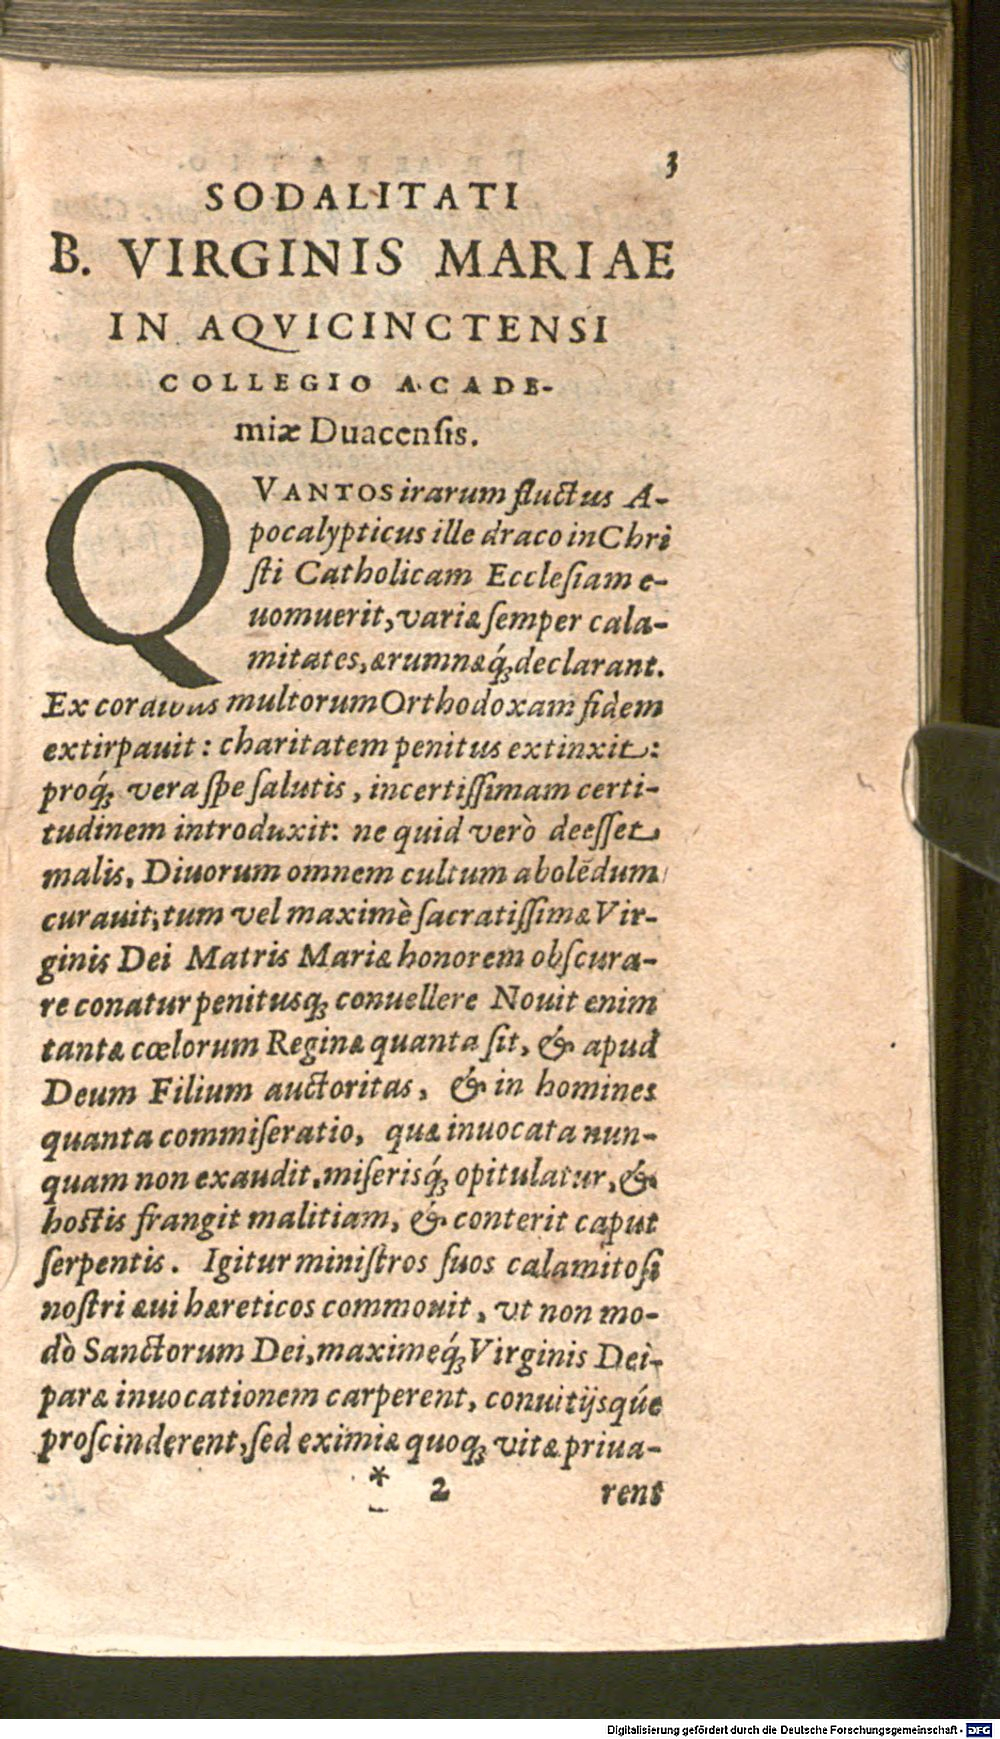 3
SODALITATI
B. VIRGINIS MARIAE
IN AQVICINCTENSI
COLLEGIO ACADE-
miæ Duacensis.
QVANTOS irarum fluctus A-
pocalypticus ille draco in Chri
sti Catholicam Ecclesiam e-
uomuerit, variæ semper cala-
mitates, ærumnæq́; declarant.
Ex cordibus multorum Orthodoxam fidem
extirpauit: charitatem penitus extinxit:
proq́; vera spe salutis, incertissimam certi-
tudinem introduxit: ne quid verò deesset
malis, Diuorum omnem cultum abolēdum
curauit; tum vel maximè sacratissimæ Vir-
ginis Dei Matris Mariæ honorem obscura-
re conatur penitusq; conuellere Nouit enim
tantæ cœlorum Reginæ quanta sit, & apud
Deum Filium auctoritas, & in homines
quanta commiseratio, quæ inuocata nun-
quam non exaudit, miserisq́; opitulatur, &
hostis frangit malitiam, & conterit caput
serpentis. Igitur ministros suos calamitosi
nostri æui hæreticos commouit, vt non mo-
dò Sanctorum Dei, maximeq́; Virginis Dei-
paræ inuocationem carperent, conuitijsqúe
proscinderent, sed eximiæ quoq; vitæ priua-
* 2 rent
Digitalisierung gefördert durch die Deutsche Forschungsgemeinschaft - DFG